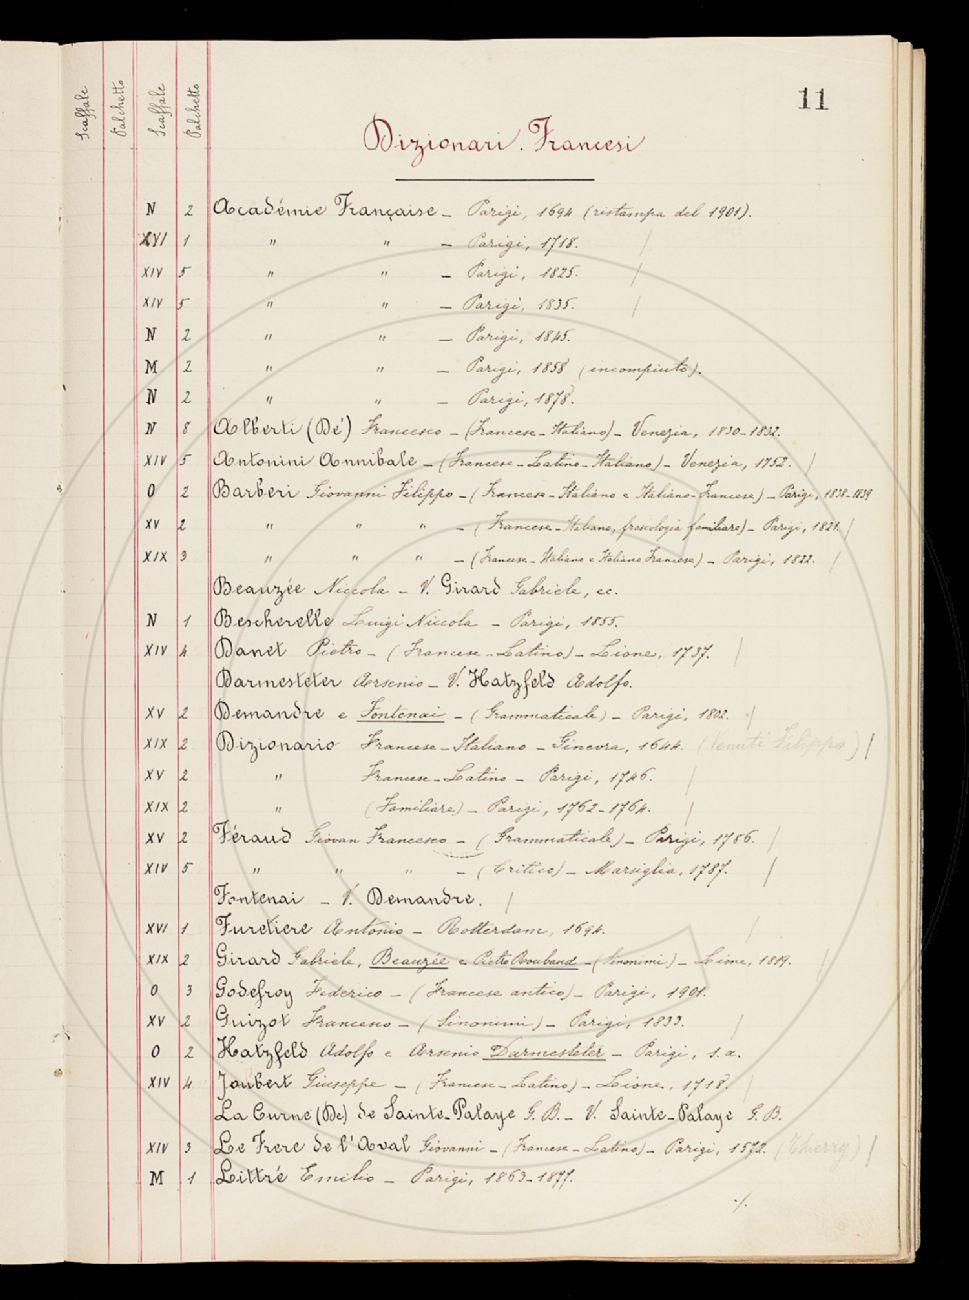 11
Scaffale Palchetto Scaffale Palchetto
Dizionari Francesi
N 2 Académie Française – Parigi, 1694 (ristampa del 1901).
XVI 1 " " – Parigi, 1718. /
XIV 5 " " – Parigi, 1825. /
XIV 5 " " – Parigi, 1835. /
N 2 " " – Parigi, 1845.
M 2 " " – Parigi, 1858 (incompiuto).
N 2 " " – Parigi, 1878.
N 8 Alberti (De') Francesco – (Francese-Italiano) – Venezia, 1830-1832.
XIV 5 Antonini Annibale – (Francese-Latino-Italiano) – Venezia, 1752. /
O 2 Barberi Giovanni Filippo – (Francese-Italiano e Italiano-Francese) – Parigi, 1838-1839
XV 2 " " " – (Francese-Italiano, fraseologia familiare) – Parigi, 1821. /
XIX 3 " " " – (Francese-Italiano e Italiano Francese) – Parigi, 1822. /
Beauzée Niccola – V. Girard Gabriele, ec.
N 1 Bescherelle Luigi Niccola – Parigi, 1855.
XIV 4 Danet Pietro – (Francese-Latino) – Lione, 1737. /
Darmesteter Arsenio – V. Hatzfeld Adolfo.
XV 2 Demandre e Fontenai – (Grammaticale) – Parigi, 1802. /
XIX 2 Dizionario Francese-Italiano – Ginevra, 1644. (Venuti Filippo) /
XV 2 " Francese-Latino – Parigi, 1746. /
XIX 2 " (Familiare) – Parigi, 1762-1764. /
XV 2 Féraud Giovan Francesco – (Grammaticale) – Parigi, 1786. /
XIV 5 " " " – (Critico) – Marsiglia, 1787. /
Fontenai – V. Demandre. /
XVI 1 Furetiere Antonio – Rotterdam, 1694. /
XIX 2 Girard Gabriele, Beauzée e Pietro Roubaud – (Sinonimi) – Lione, 1819. /
O 3 Godefroy Federico – (Francese antico) – Parigi, 1901.
XV 2 Guizot Francesco – (Sinonimi) – Parigi, 1833. /
O 2 Hatzfeld Adolfo e Arsenio Darmesteter – Parigi, s.a.
XIV 4 Joubert Giuseppe – (Francese-Latino) – Lione, 1718. /
La Curne (De) de Sainte-Palaye G. B. – V. Sainte-Palaye G. B.
XIV 3 Le Frere de l'Aval Giovanni – (Francese-Latino) – Parigi, 1572. (Thierry) /
M 1 Littré Emilio – Parigi, 1863-1877.
./.